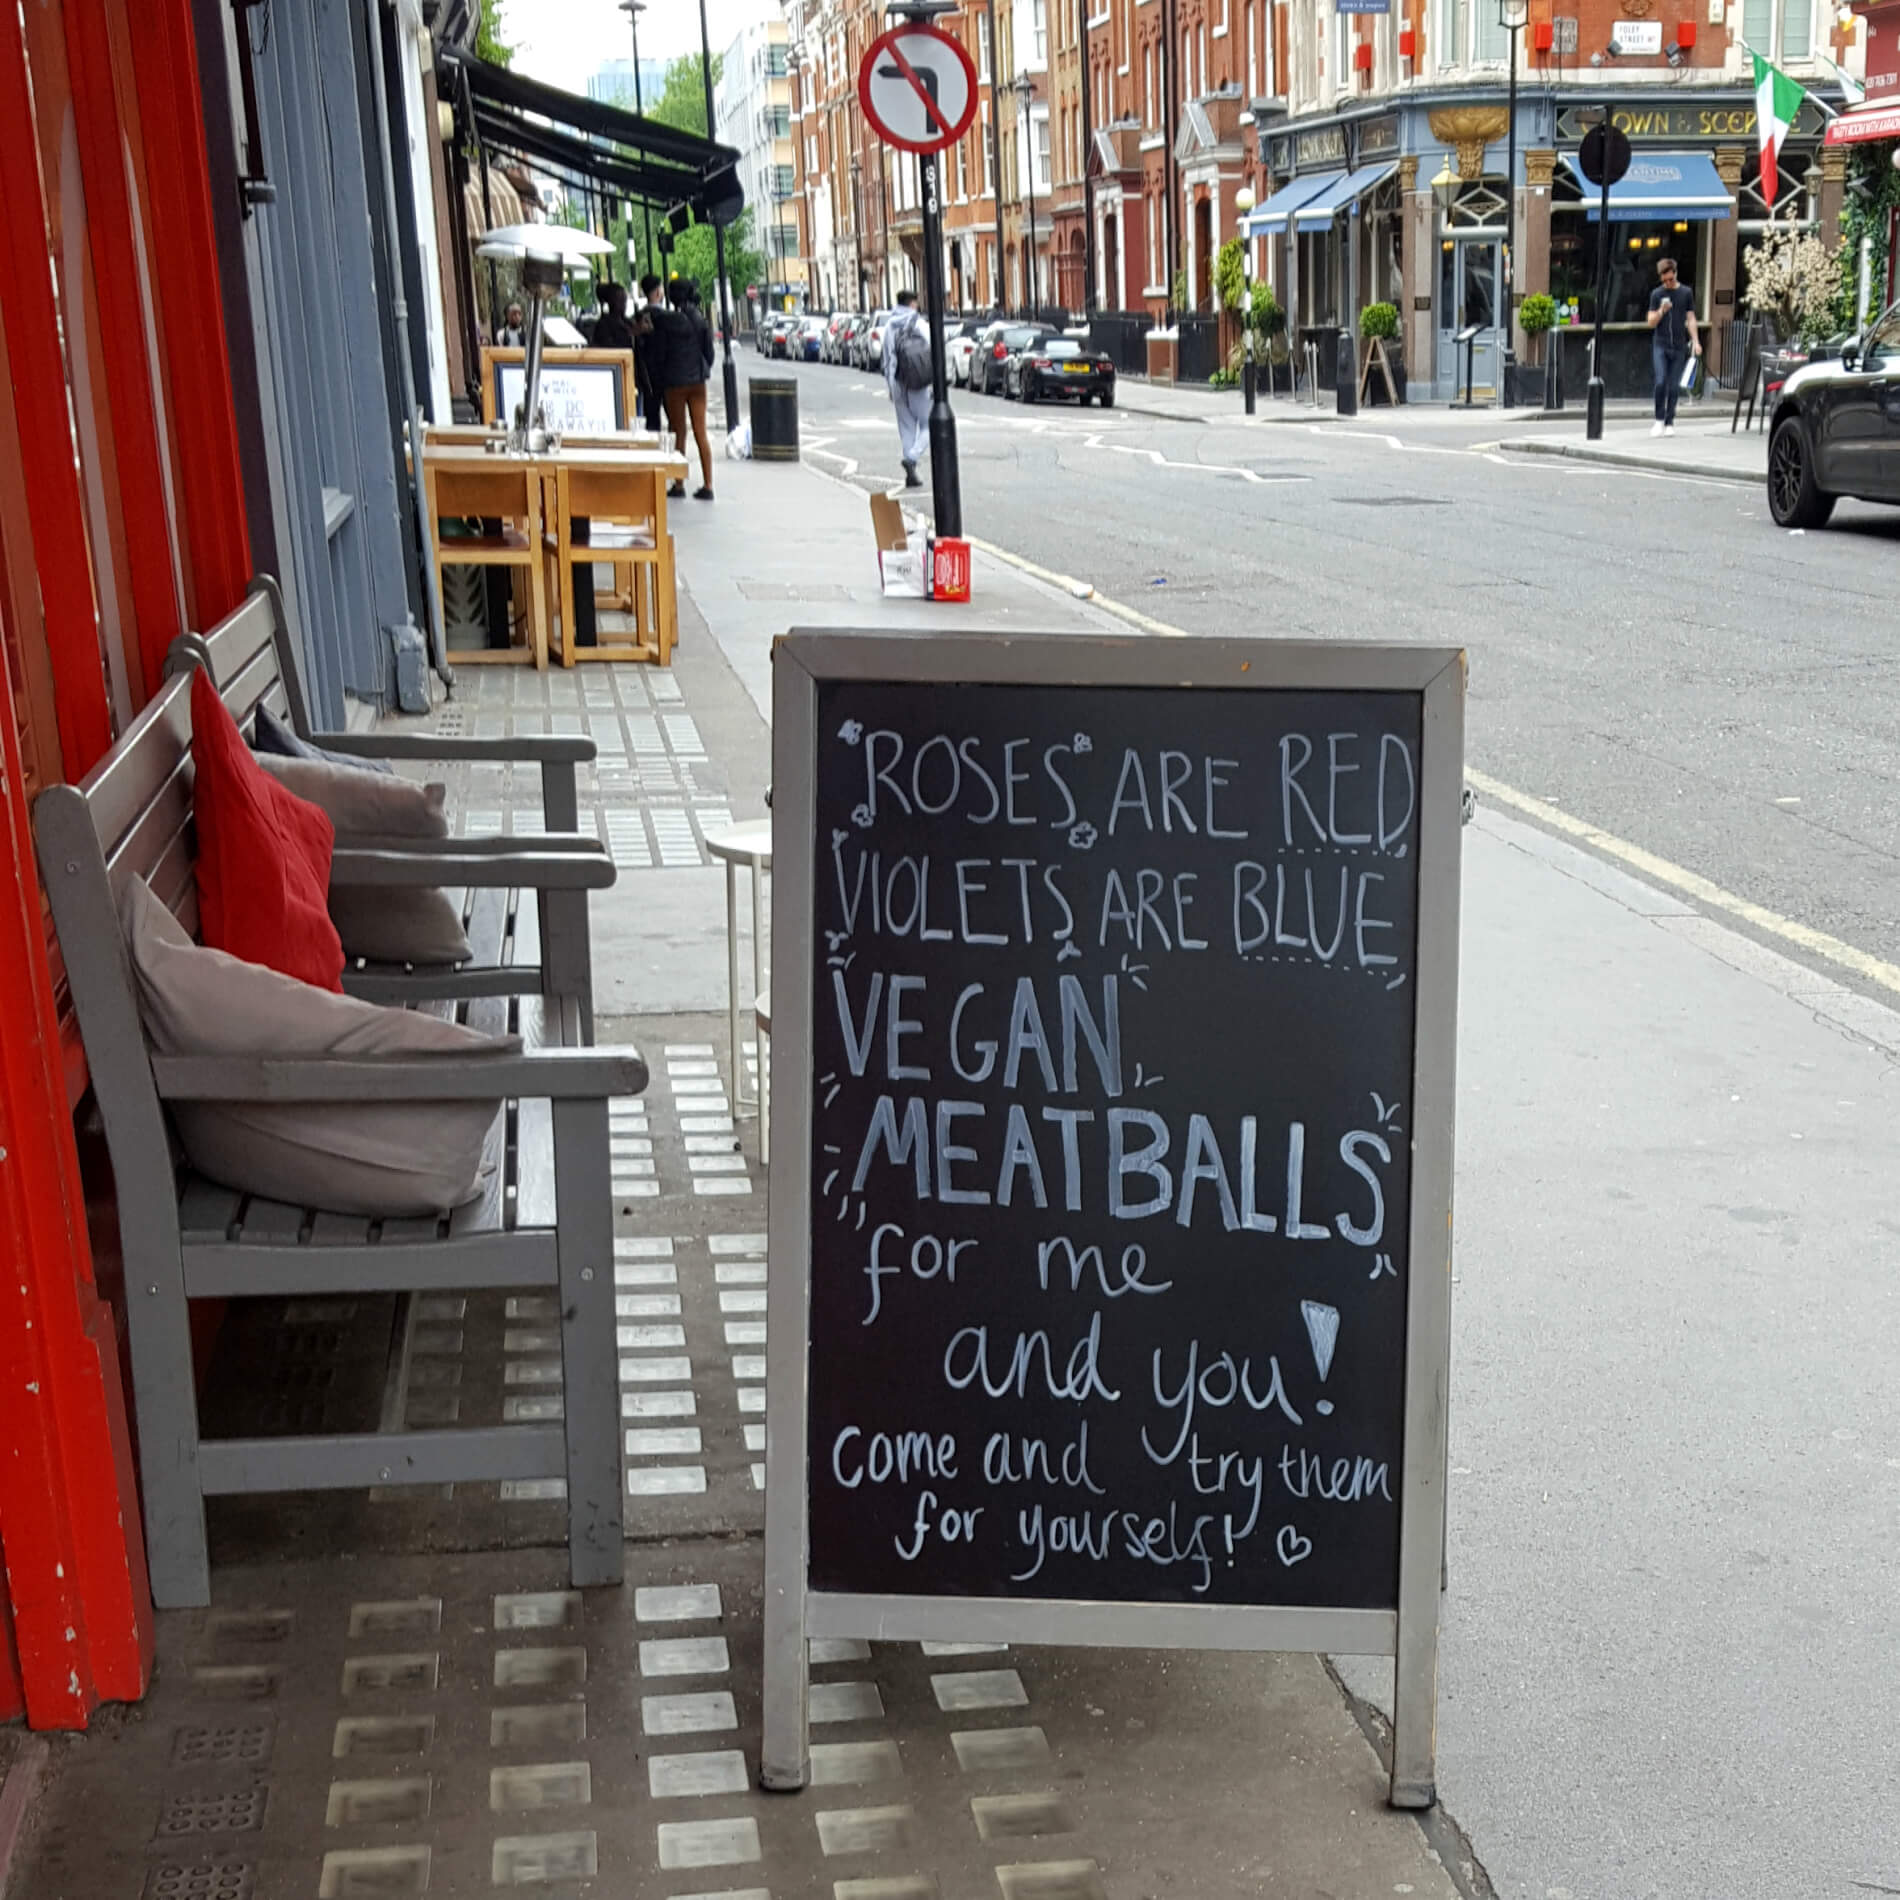 ROSES ARE RED
VIOLETS ARE BLUE
VEGAN
MEATBALLS
for me
and you!
come and try them
for yourself!
FOLEY
STREET W1
CROWN & SCEPTRE